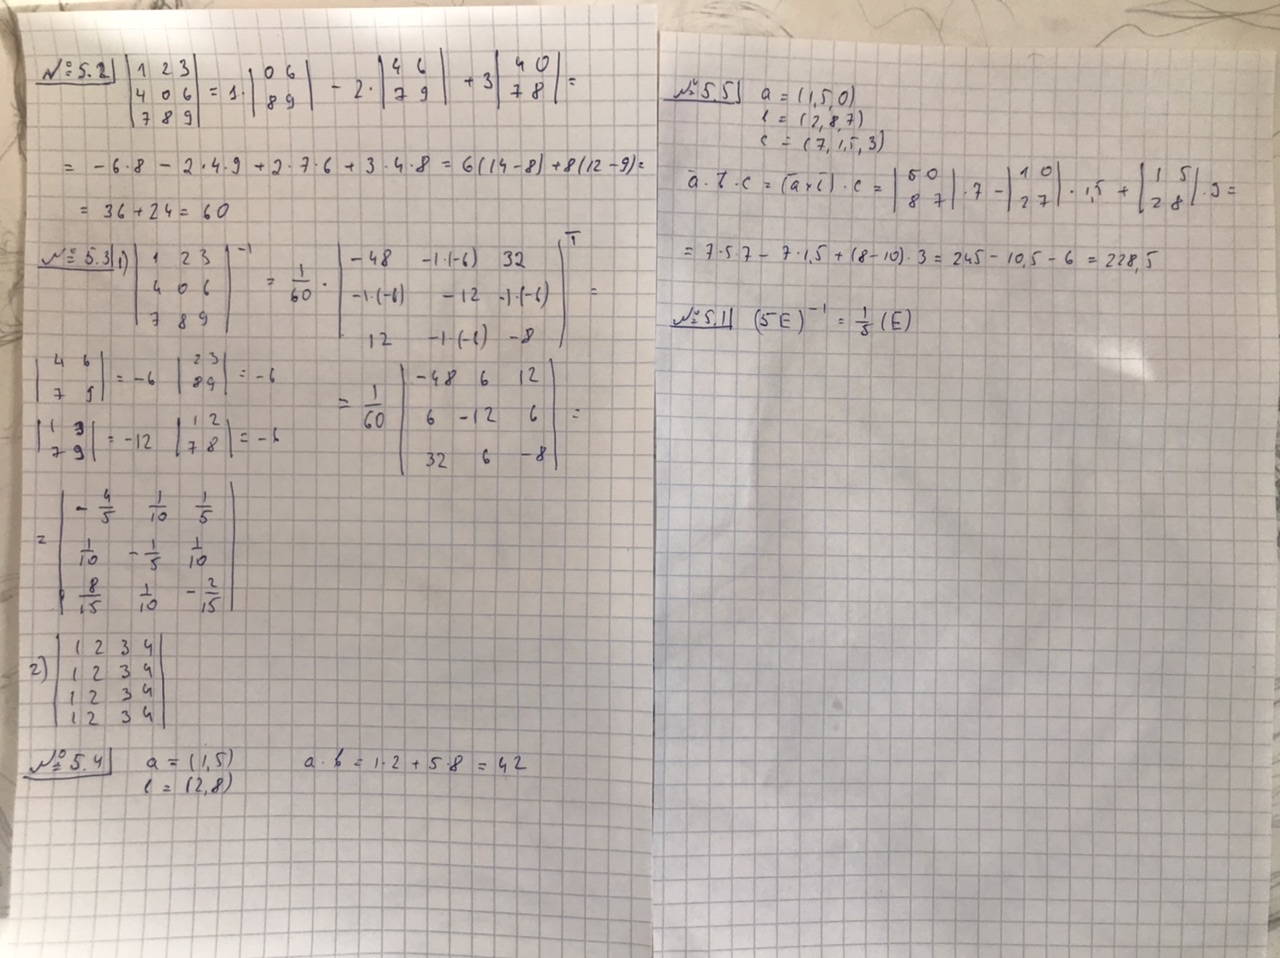 №5.2 |1 2 3; 4 0 6; 7 8 9| = 1·|0 6; 8 9| - 2·|4 6; 7 9| + 3|4 0; 7 8| =
= -6·8 - 2·4·9 + 2·7·6 + 3·4·8 = 6(14-8) + 8(12-9) =
= 36 + 24 = 60
№5.3 1) |1 2 3; 4 0 6; 7 8 9|⁻¹ = 1/60 · |-48 -1·(-6) 32; -1·(-6) -12 -1·(-6); 12 -1·(-6) -8|ᵀ =
|4 6; 7 9| = -6 |2 3; 8 9| = -6
|1 3; 7 9| = -12 |1 2; 7 8| = -6
= 1/60 |-48 6 12; 6 -12 6; 32 6 -8| =
= |-4/5 1/10 1/5; 1/10 -1/5 1/10; 8/15 1/10 -2/15|
2) |1 2 3 4; 1 2 3 4; 1 2 3 4; 1 2 3 4|
№5.4 a = (1,5) a·b = 1·2 + 5·8 = 42
b = (2,8)
№5.5 a = (1,5,0)
b = (2,8,7)
c = (7,1,5,3)
a·b·c = (a×b)·c = |5 0; 8 7|·7 - |1 0; 2 7|·1,5 + |1 5; 2 8|·3 =
= 7·5·7 - 7·1,5 + (8-10)·3 = 245 - 10,5 - 6 = 228,5
№5.1 (5E)⁻¹ = 1/5 (E)